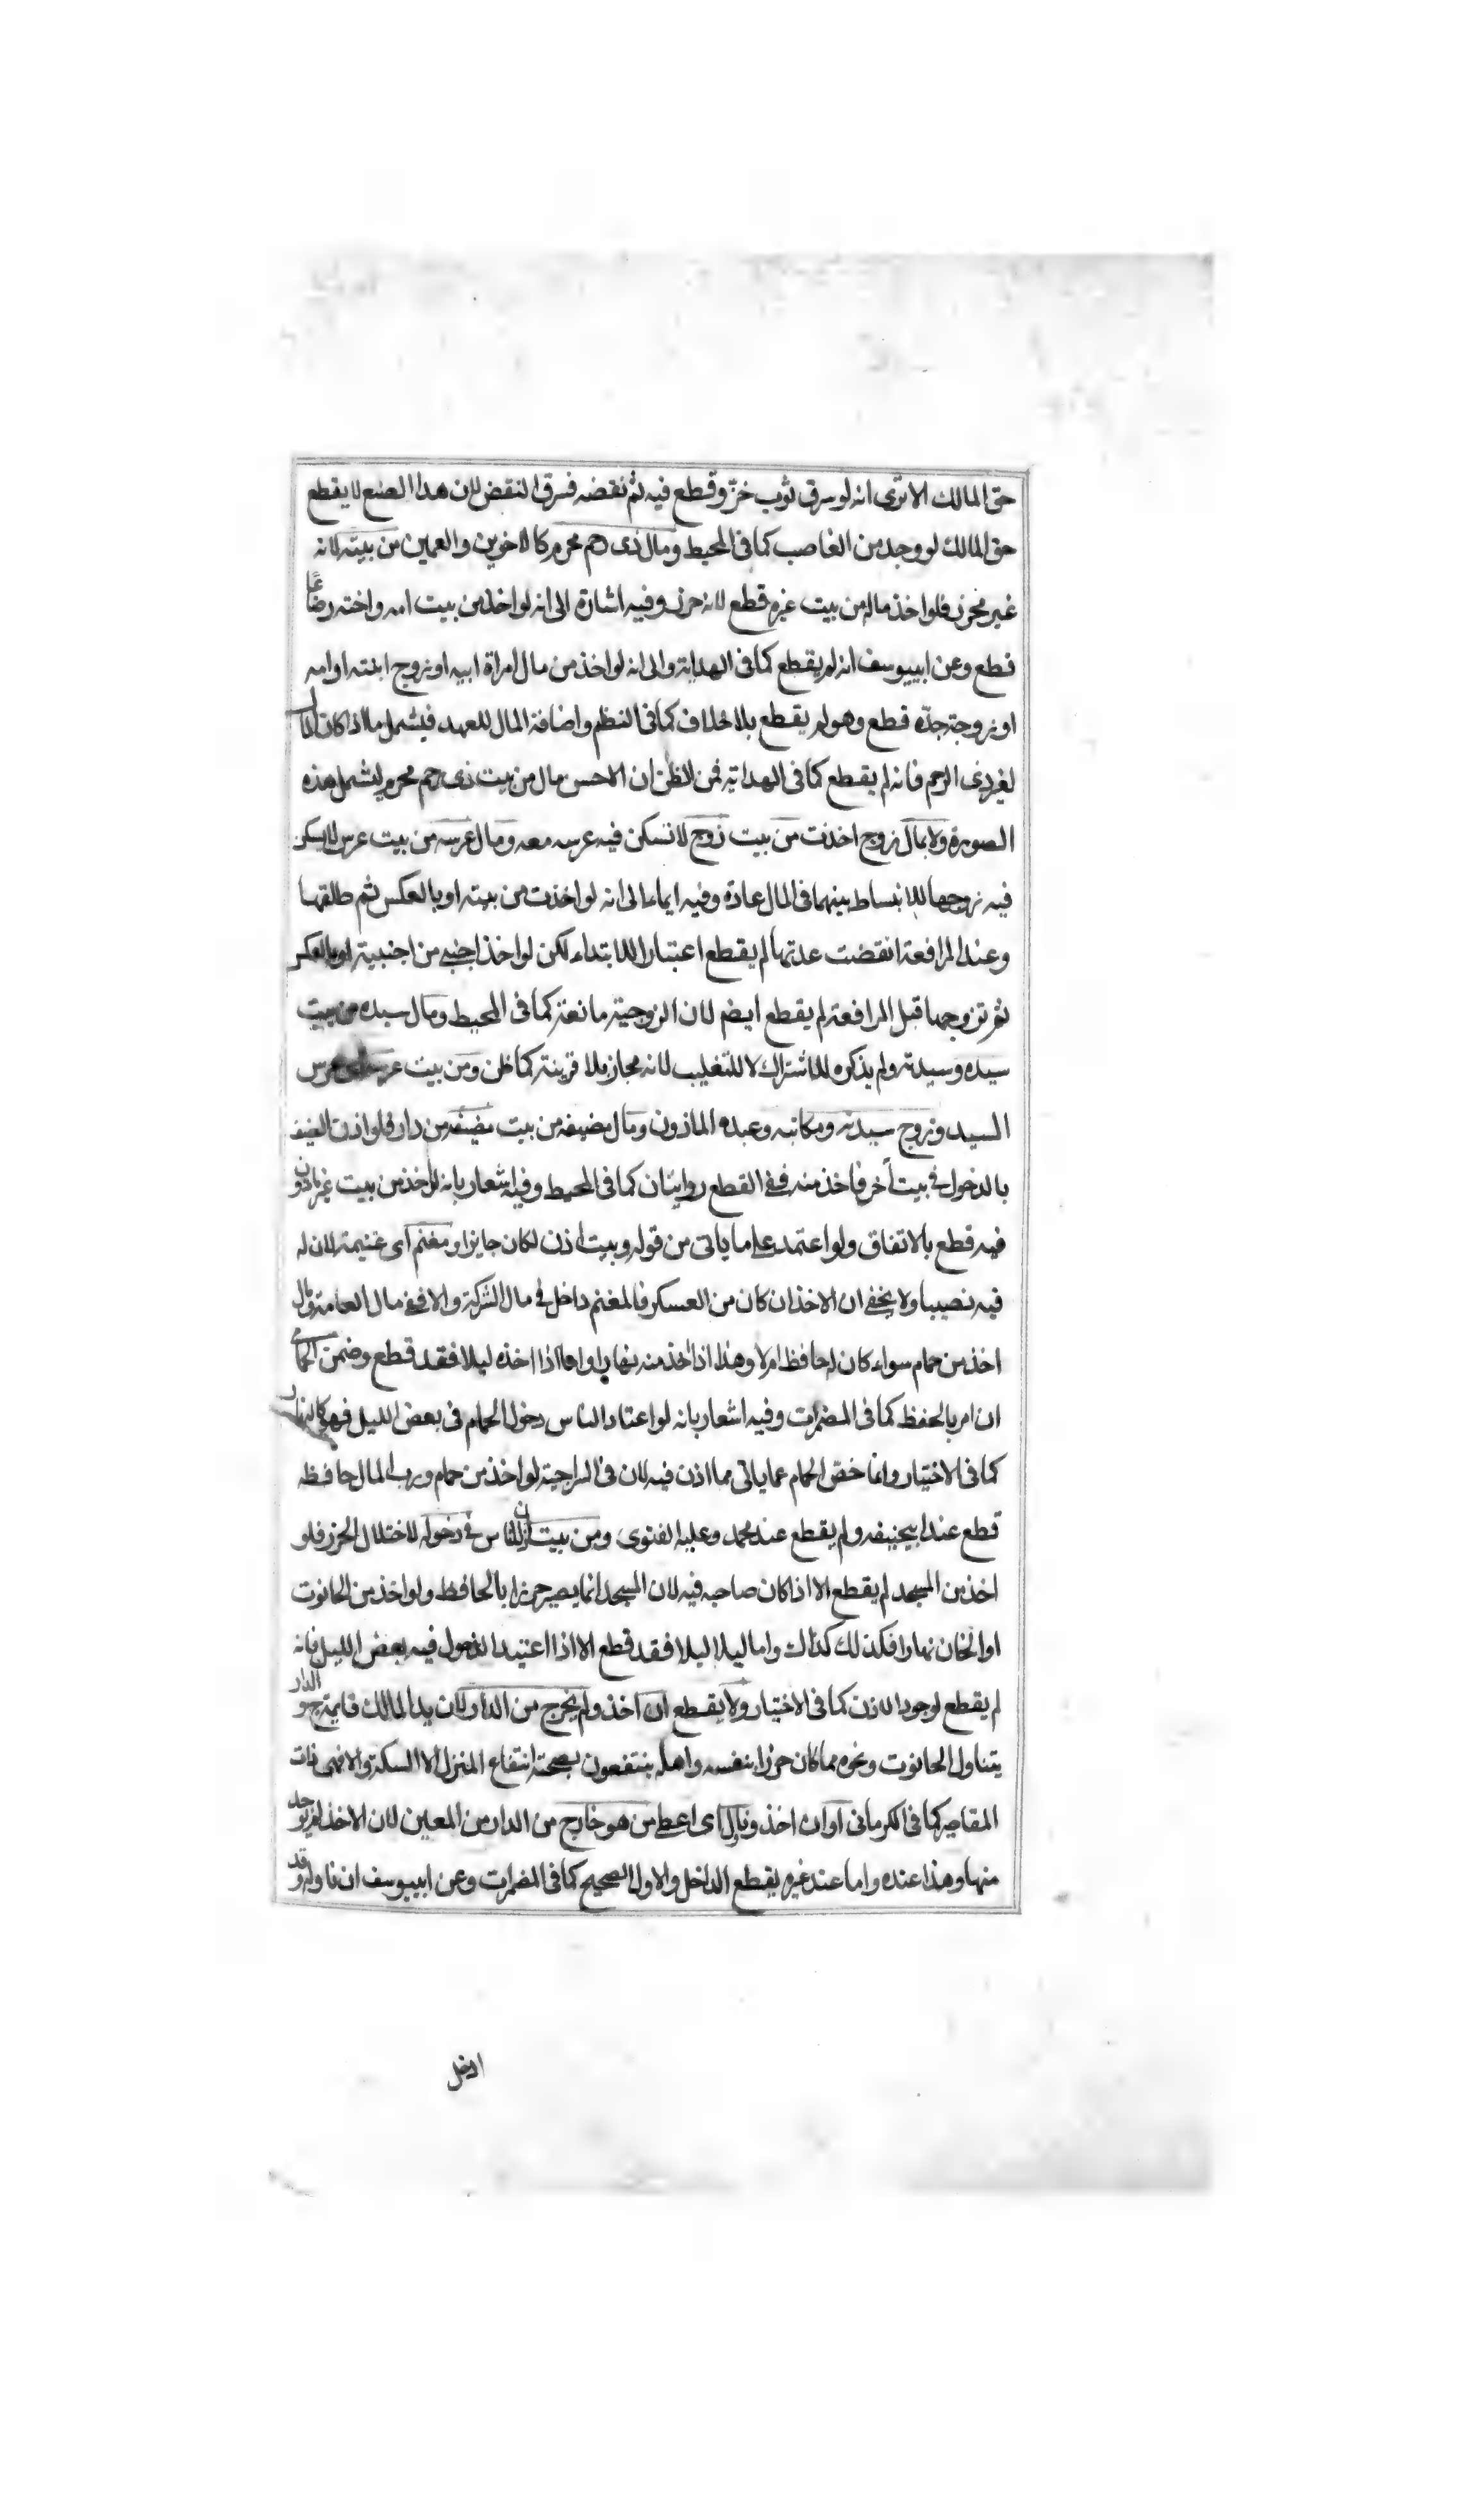 حق المالك الا ترى انه لو سرق ثوب خز وقطع فيه ثم نقضه فسرق النقض لان هذا الصنع لا يقطع
حق المالك لو وجد من الغاصب كما فى المحيط ومال ذى رحم محرم كالاخوين والعمين من بيته لانه
غير محرز فلو اخذ ماله من بيت غيره قطع لانه حرز وفيه اشارة الى انه لو اخذ من بيت امه واخته رضاعًا
قطع وعن ابيوسف انه لم يقطع كما فى الهداية والى انه لو اخذ من مال امراة ابيه او زوج ابنته او امه
او زوجة جده قطع وهو لم يقطع بلا خلاف كما فى النظم واضافة المال للعهد فيشمل ما اذا كان المال
لغير ذى الرحم فانه لم يقطع كما فى الهداية فمن الظن ان الاحسن مال من بيت ذى رحم محرم ليشمل هذه
الصورة ولا بمال زوج اخذت من بيت زوج لا تسكن فيه عرسه معه ومال عرسه من بيت عرس لا يسكن
فيه زوجها للانبساط بينهما فى المال عادة وفيه ايماء الى انه لو اخذت من بيته او بالعكس ثم طلقها
وعند المرافعة انقضت عدتها لم يقطع اعتبارا للابتداء لكن لو اخذ اجنبى من اجنبية او بالعكس
ثم تزوجها قبل المرافعة لم يقطع ايضم لان الزوجية مانعة كما فى المحيط ومال سيده من بيت
سيده وسيدته ولم يذكره للاشتراك لا للتغليب لانه مجاز بلا قرينة كما ظن ومن بيت عرسه اى عرس
السيد وزوج سيدته ومكاتبه وعبده الماذون ومال مضيفه من بيت مضيفه من دار فلو اذن الضيف
بالدخول فى بيت آخر فاخذ منه ففى القطع روايتان كما فى المحيط وفيه اشعار بانه لو اخذ من بيت غير ماذون
فيه قطع بالاتفاق ولو اعتمد على ما ياتى من قوله وبيت اذن لكان جايزا ومغنم اى غنيمة لان له
فيه نصيبا ولا يخفى ان الاخذ ان كان من العسكر فالمغنم داخل فى مال الشركة والا ففى مال العامة ومال
اخذ من حمام سواء كان له حافظ ام لا وهذا اذا اخذ منه نهارا واما اذا اخذه ليلا فقد قطع وضمن الحمامى
ان امر بالحفظ كما فى المضمرات وفيه اشعار بانه لو اعتاد الناس دخول الحمام فى بعض الليل فهو كالنهار
كما فى الاختيار وانما خص الحمام عما ياتى مما اذن فيه لان فى السراجية لو اخذ من حمام ورب المال حافظه
قطع عند ابيحنيفه ولم يقطع عند محمد وعليه الفتوى ومن بيت اذن للناس فى دخوله لاختلال الحرز فلو
اخذ من المسجد لم يقطع الا اذا كان صاحبه فيه لان المسجد انما يصير حرزا بالحافظ ولو اخذ من الحانوت
او الخان نهارا فكذلك كذلك واما ليلا ليلا فقد قطع الا اذا اعتيد الدخول فيه بعض الليل فانه
لم يقطع لوجود الاذن كما فى الاختيار ولا يقطع ان اخذ ولم يخرج من الدار لان يد المالك قايمة والدار
يتناول الحانوت ونحوه مما كان حرزا بنفسه واهله ينتفعون بصحنه انتفاع المنزل لا السكة والا فهى ذات
المقاصير كما فى الكرمانى او ان اخذ وناول اى اعطى من هو خارج من الدار من المعين لان الاخذ لم يوجد
منها وهذا عنده واما عند غيره يقطع الداخل والاول الصحيح كما فى المضمرات وعن ابيوسف ان ناوله وقد
ادخل